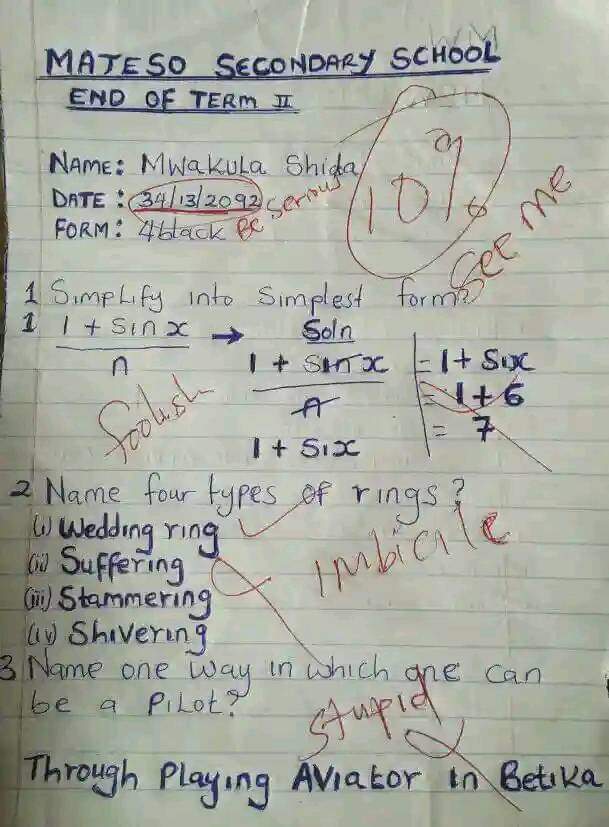 MATESO SECONDARY SCHOOL
END OF TERM II
NAME: Mwakula Shida
10%
DATE: 34/13/2092 Be Serious
See Me
FORM: 4black
1 Simplify into simplest form?
1 1 + Sin x → Soln
n
1 + Sin x
n
1 + Six
= 1 + Six
= 1 + 6
= 7
foolish
2 Name four types of rings?
(i) Wedding ring
(ii) Suffering
(iii) Stammering
(iv) Shivering
imbicile
3 Name one way in which one can
be a Pilot?
Stupid
Through Playing AViator in Betika